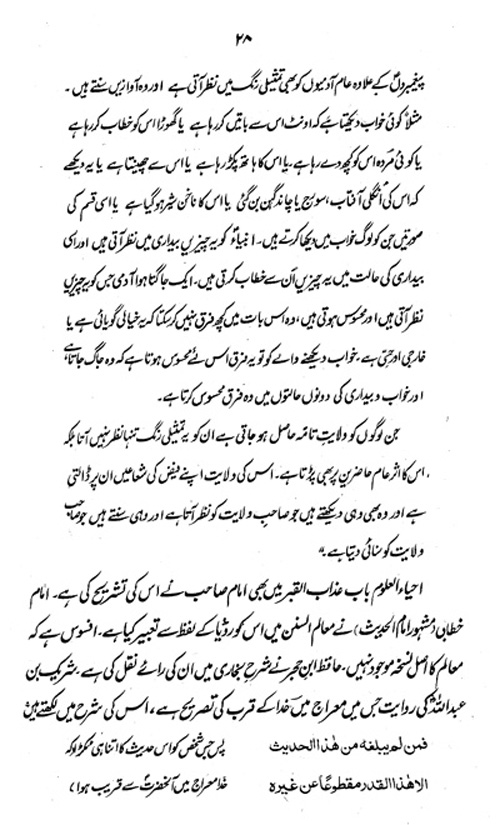 ۲۸
پیغمبروں کے علاوہ عام آدمیوں کو بھی تمثیلی رنگ میں نظر آتی ہے اور وہ آوازیں سنتے ہیں۔
مثلاً کوئی خواب دیکھتا ہے کہ اونٹ اس سے باتیں کر رہا ہے یا گھوڑا اس کو خطاب کر رہا ہے
یا کوئی مردہ اس کو کچھ دے رہا ہے، یا اس کا ہاتھ پکڑ رہا ہے یا اس سے چھینتا ہے یا یہ دیکھے
کہ اس کی انگلی آفتاب، سورج یا چاند گہن بن گئی یا اس کا ناخن شیر ہو گیا ہے یا اسی قسم کی
صورتیں جن کو لوگ خواب میں دیکھا کرتے ہیں۔ انبیاءؑ کو یہ چیزیں بیداری میں نظر آتی ہیں اور اسی
بیداری کی حالت میں یہ چیزیں اُن سے خطاب کرتی ہیں۔ ایک جاگتا ہوا آدمی جس کو یہ چیزیں
نظر آتی ہیں اور محسوس ہوتی ہیں، وہ اس بات میں کچھ فرق نہیں کر سکتا کہ یہ خیالی گویائی ہے یا
خارجی اور حِسّی ہے۔ خواب دیکھنے والے کو تو یہ فرق اس لئے محسوس ہوتا ہے کہ وہ جاگ جاتا ہے
اور خواب و بیداری کی دونوں حالتوں میں وہ فرق محسوس کرتا ہے۔
جن لوگوں کو ولایتِ تامّہ حاصل ہو جاتی ہے ان کو یہ تمثیلی رنگ تنہا نظر نہیں آتا بلکہ
اس کا اثر عام حاضرین پر بھی پڑتا ہے۔ اس کی ولایت اپنے فیض کی شعاعیں ان پر ڈالتی
ہے اور وہ بھی وہی دیکھتے ہیں جو صاحبِ ولایت کو نظر آتا ہے اور وہی سنتے ہیں جو صاحبِ
ولایت کو سنائی دیتا ہے۔"
احیاء العلوم باب عذاب القبر میں بھی امام صاحب نے اس کی تشریح کی ہے۔ امام
خطابی (مشہور امام الحدیث) نے معالم السنن میں اس کو رؤیا کے لفظ سے تعبیر کیا ہے۔ افسوس ہے کہ
معالم کا اصل نسخہ موجود نہیں۔ حافظ ابن حجر نے شرح بخاری میں ان کی رائے نقل کی ہے۔ شریک بن
عبداللہؓ کی روایت جس میں معراج میں خدا کے قرب کی تصریح ہے، اس کی شرح میں لکھتے ہیں
فمن لم يبلغه من هٰذا الحديث پس جس شخص کو اس حدیث کا اتنا ہی ٹکڑا (کہ
الا هٰذا القدر مقطوعًا عن غيره خدا معراج میں آنحضرتؐ سے قریب ہوا)